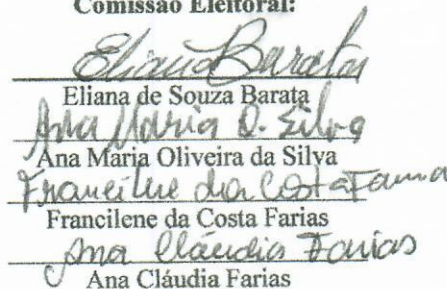 Comissão Eleitoral:
Eliana Barata
Eliana de Souza Barata
Ana Maria O. Silva
Ana Maria Oliveira da Silva
Francilene da Costa Farias
Francilene da Costa Farias
Ana Cláudia Farias
Ana Cláudia Farias